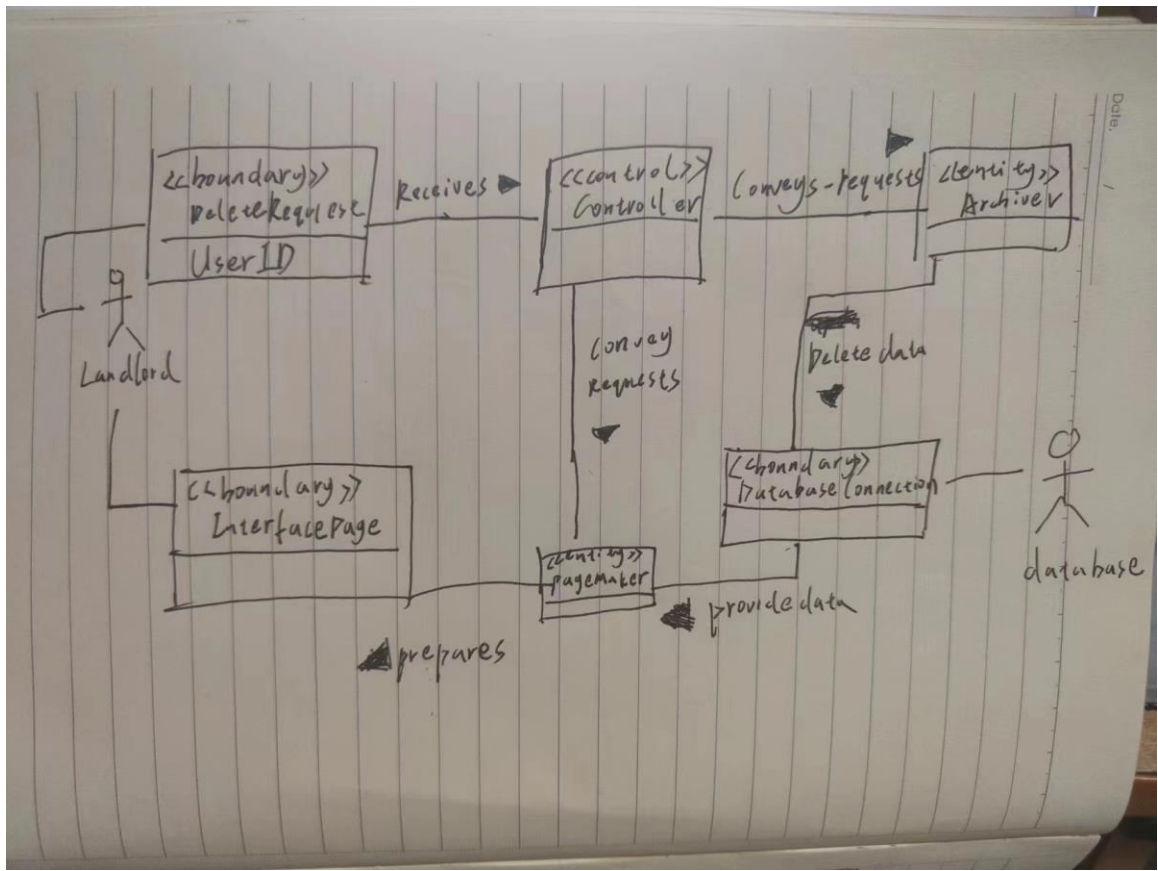 Date.
<<boundary>>
DeleteRequest
UserID
Receives
<<control>>
Controller
Conveys-requests
<<entity>>
Archiver
Landlord
Convey
Requests
Delete data
<<boundary>>
InterfacePage
<<boundary>>
DatabaseConnection
<<entity>>
pagemaker
database
provide data
prepares